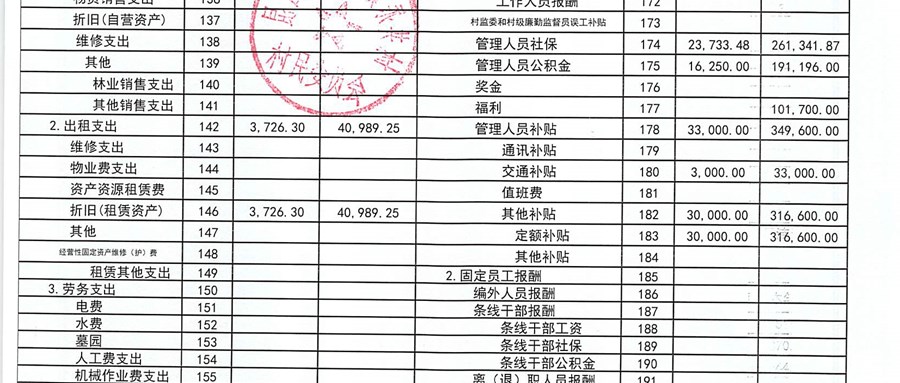 折旧(自营资产) 137 村监委和村级廉勤监督员误工补贴 173
维修支出 138 管理人员社保 174 23,733.48 261,341.87
其他 139 管理人员公积金 175 16,250.00 191,196.00
林业销售支出 140 奖金 176
其他销售支出 141 福利 177 101,700.00
2. 出租支出 142 3,726.30 40,989.25 管理人员补贴 178 33,000.00 349,600.00
维修支出 143 通讯补贴 179
物业费支出 144 交通补贴 180 3,000.00 33,000.00
资产资源租赁费 145 值班费 181
折旧(租赁资产) 146 3,726.30 40,989.25 其他补贴 182 30,000.00 316,600.00
其他 147 定额补贴 183 30,000.00 316,600.00
经营性固定资产维修(护)费 148 其他补贴 184
租赁其他支出 149 2. 固定员工报酬 185
3. 劳务支出 150 编外人员报酬 186
电费 151 条线干部报酬 187
水费 152 条线干部工资 188
墓园 153 条线干部社保 189
人工费支出 154 条线干部公积金 190
机械作业费支出 155 离(退)职人员报酬 191
村民委员会